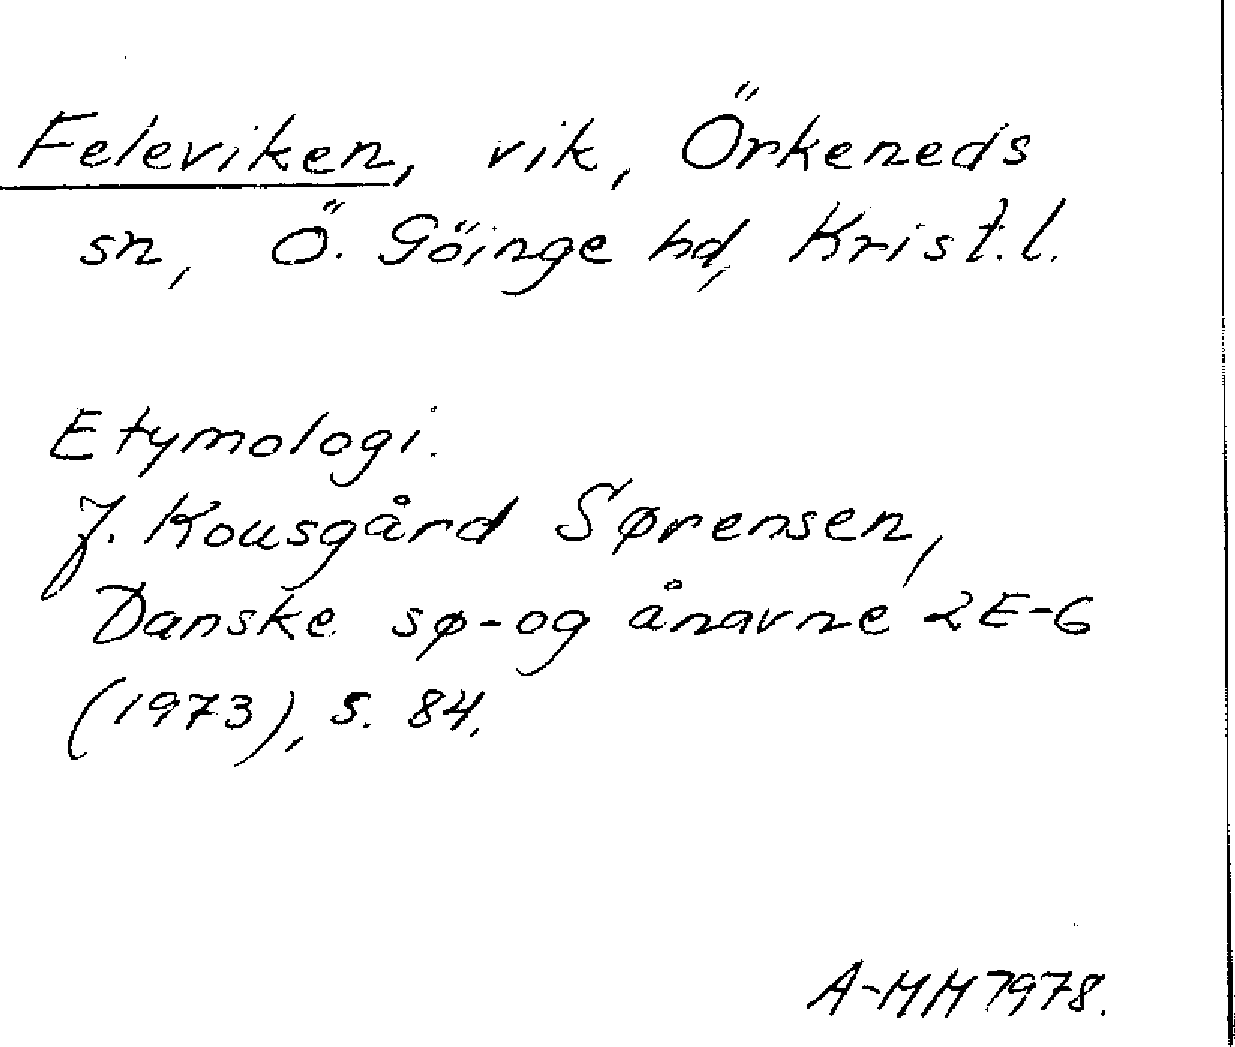 Feleviken, vik, Örkeneds
sn, Ö. Göinge hd, Krist.l.
Etymologi.
J. Kousgård Sørensen,
Danske sø- og ånavne 2E-G
(1973), s. 84.
A-MM 1978.